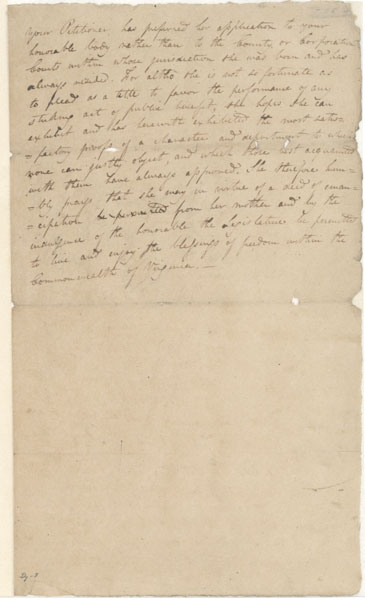 your Petitioner has preferred her application to your
honorable body rather than to the County or Corporation
Courts within whose jurisdiction she was born and has
always resided. For altho' she is not so fortunate as
to plead as a title to favor the performance of any
striking act of public benefit, she hopes she can
exhibit and has herewith exhibited the most satis-
=factory proofs of a character and deportment to which
none can justly object, and which those best acquainted
with them have always approved. She therefore hum-
=bly prays that she may in virtue of a deed of eman-
=cipation from her mother and by the
indulgence of the honorable the Legislature be permitted
to live and enjoy the blessings of freedom within the
Commonwealth of Virginia.